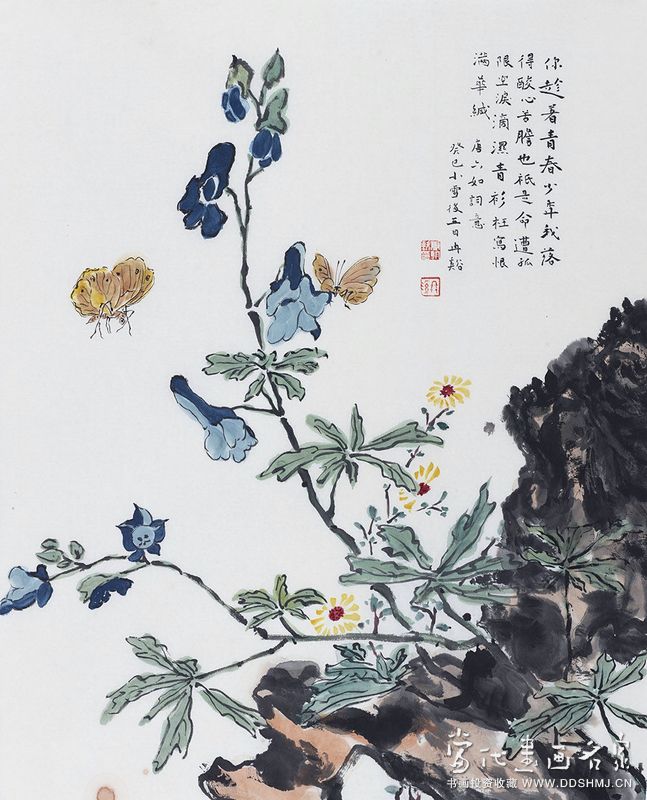 你趁著青春少年我落
得酸心苦膽也祇是命遭孤
限空淚滴濕青衫枉寫恨
滿華緘 唐六如詞意
癸巳小雪後五日冉谿
当代书画名家
书画投资收藏 WWW.DDSHMJ.CN